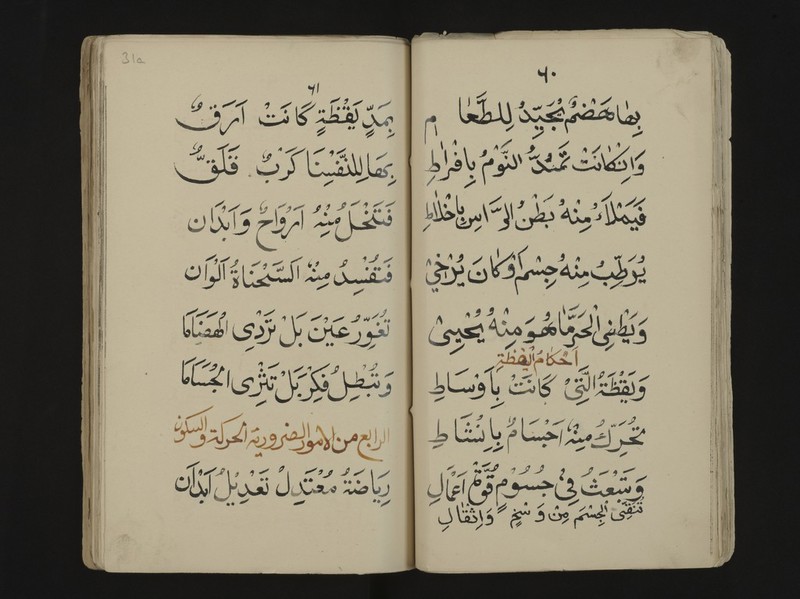 ٦٠
بِهَا هَضْمٌ يُجِيِّدُ لِلطَّعَام
وَاِنْ كَانَتْ تَمُدُّ النَّوْمُ بِافْرَاطِ
فَيَمْلَاءُ مِنْهُ بَطْنُ الرَّاسِ بِاخْلَاطِ
يُرَطِّبُ مِنْهُ جِسْمَ اَوْ كَانَ يُرْخِيْ
وَيُطْفِى الْحَرَّ مَا هُوَ مِنْهُ يُحْيِىْ
اَحْكَامُ الْيَقْظَةِ
وَيَقْظَةُ الَّتِيْ كَانَتْ بِاَوْسَاطِ
تُحَرِّكُ مِنْهُ اَجْسَامٌ بِاِنْشَاطِ
وَتَبْعَثُ فِيْ جُسُوْمٍ قُوَّةُ اَعْمَالِ
تُنَقِّى الْجِسْمَ مِنْ وَسَخٍ وَاِثْقَالِ
31a
٦١
بِمَدِّ يَقْظَةٍ كَانَتْ اَرَقٌ
بِهَا لِلنَّفْسِنَا كَرْبٌ قَلَقٌ
فَتَنْحَلُ مِنْهُ اَرْوَاحٌ وَاَبْدَان
فَتُفْسِدُ مِنْهُ السَّحْنَاةُ اَلْوَان
تُغَوِّرُ عَيْنَ بَلْ تَرْدِى الْهَضَامَا
وَتُبْطِلُ فِكْرَ بَلْ تَبْرِى الْجُسَامَا
الرابع من الامور الضرورية الحركة والسكون
رِيَاضَةُ مُعْتَدِلْ تَعْدِيْلُ اَبْدَان